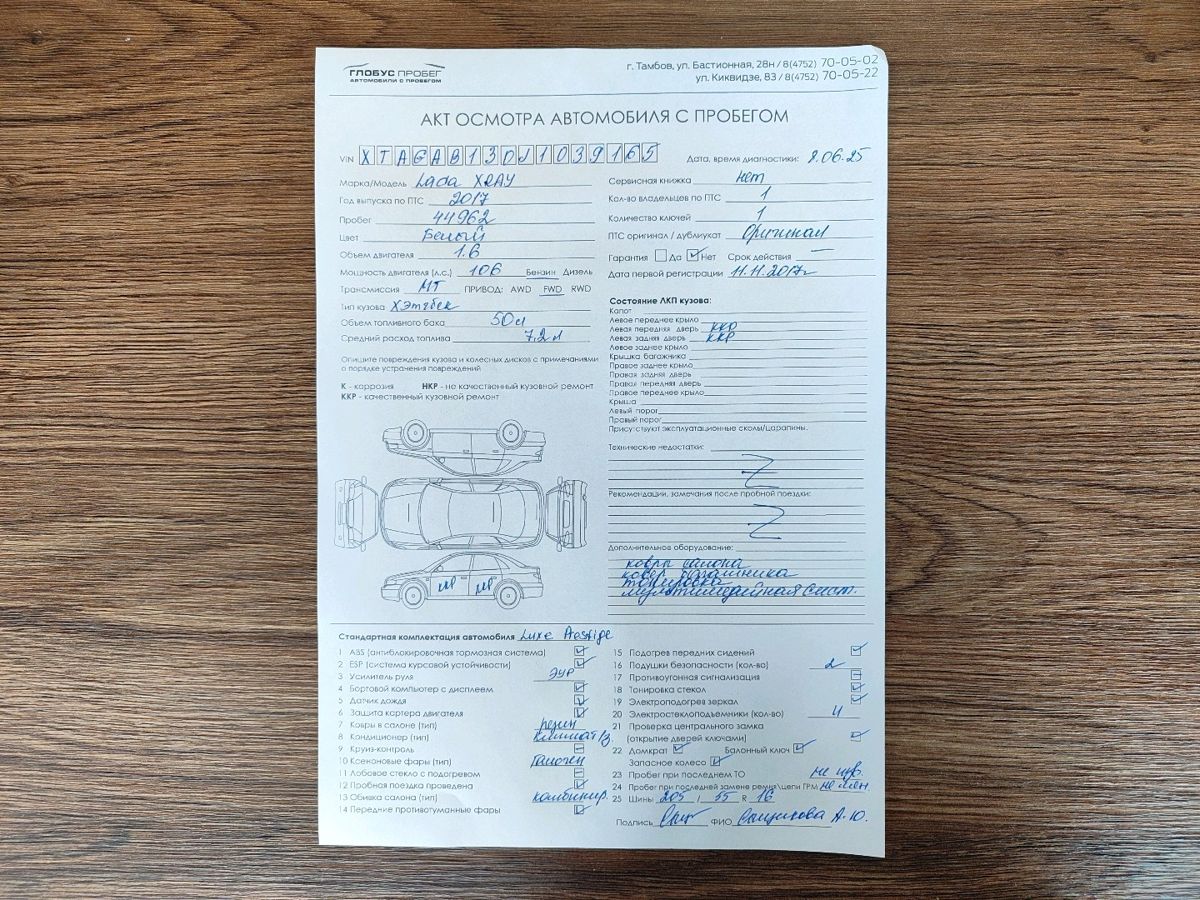 ГЛОБУС ПРОБЕГ
АВТОМОБИЛИ С ПРОБЕГОМ
г. Тамбов, ул. Бастионная, 28н / 8(4752) 70-05-02
ул. Киквидзе, 83 / 8(4752) 70-05-22
АКТ ОСМОТРА АВТОМОБИЛЯ С ПРОБЕГОМ
VIN XTAGAB130J1039165
Дата, время диагностики: 8.06.25
Марка/Модель Lada XRAY
Год выпуска по ПТС 2017
Пробег 44962
Цвет Белый
Объем двигателя 1.6
Мощность двигателя (л.с.) 106 Бензин Дизель
Трансмиссия МТ ПРИВОД: AWD FWD RWD
Тип кузова Хэтчбек
Объем топливного бака 50л
Средний расход топлива 7,2 л
Опишите повреждения кузова и колесных дисков с примечаниями
о порядке устранения повреждений
К - коррозия НКР - не качественный кузовной ремонт
ККР - качественный кузовной ремонт
Сервисная книжка нет
Кол-во владельцев по ПТС 1
Количество ключей 1
ПТС оригинал / дубликат Оригинал
Гарантия Да Нет Срок действия —
Дата первой регистрации 11.11.2017г
Состояние ЛКП кузова:
Капот
Левое переднее крыло
Левая передняя дверь ККР
Левая задняя дверь ККР
Левое заднее крыло
Крышка багажника
Правое заднее крыло
Правая задняя дверь
Правая передняя дверь
Правое переднее крыло
Крыша
Левый порог
Правый порог
Присутствуют эксплуатационные сколы/царапины.
Технические недостатки:
Z
Рекомендации, замечания после пробной поездки:
Z
Дополнительное оборудование:
ковры салона
ковер багажника
тонировка
мультимедийная сист.
Стандартная комплектация автомобиля Luxe Prestige
1 ABS (антиблокировочная тормозная система)
2 ESP (система курсовой устойчивости)
3 Усилитель руля ЭУР
4 Бортовой компьютер с дисплеем
5 Датчик дождя
6 Защита картера двигателя
7 Ковры в салоне (тип) резин
8 Кондиционер (тип)
9 Круиз-контроль
10 Ксеноновые фары (тип) Галоген
11 Лобовое стекло с подогревом
12 Пробная поездка проведена
13 Обивка салона (тип) комбинир.
14 Передние противотуманные фары
15 Подогрев передних сидений
16 Подушки безопасности (кол-во) 2
17 Противоугонная сигнализация
18 Тонировка стекол
19 Электроподогрев зеркал
20 Электростеклоподъемники (кол-во) 4
21 Проверка центрального замка
(открытие дверей ключами)
22 Домкрат Балонный ключ
Запасное колесо
23 Пробег при последнем ТО не изв.
24 Пробег при последней замене ремня\цепи ГРМ не
25 Шины 205 / 55 R 16
Подпись ФИО А.Ю.